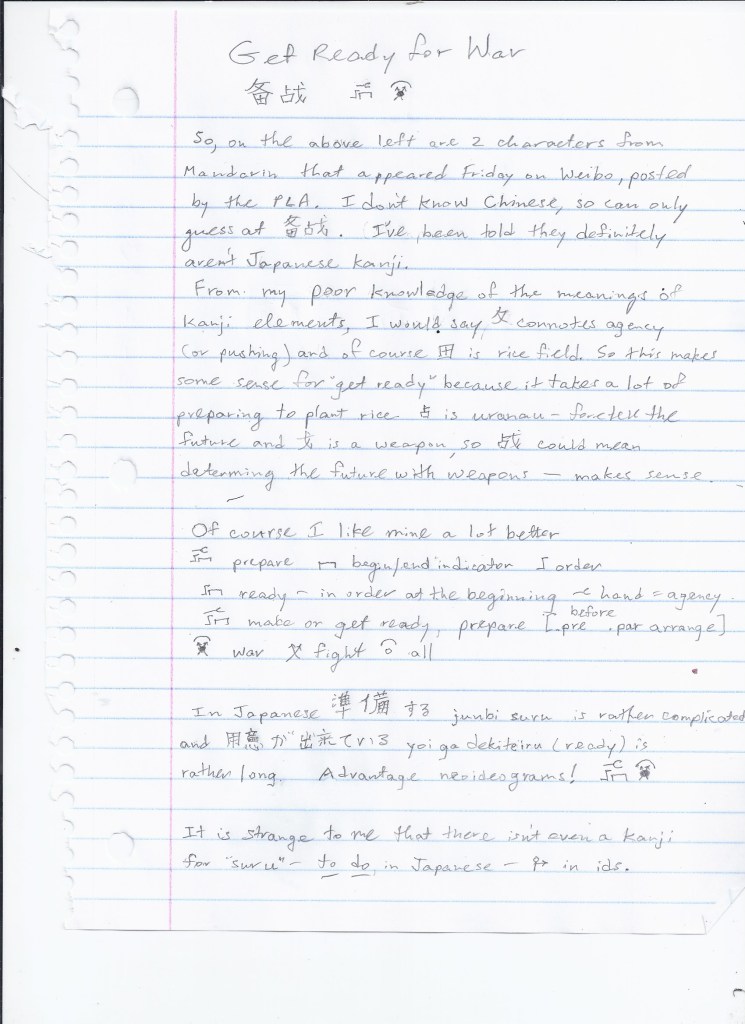 Get Ready for War
备战
So, on the above left are 2 characters from
Mandarin that appeared Friday on Weibo, posted
by the PLA. I don't know Chinese, so can only
guess at 备战. I've been told they definitely
aren't Japanese kanji.
From my poor knowledge of the meanings of
kanji elements, I would say 夂 connotes agency
(or pushing) and of course 田 is rice field. So this makes
some sense for "get ready" because it takes a lot of
preparing to plant rice. 占 is uranau - foretell the
future and 戈 is a weapon, so 战 could mean
determing the future with weapons — makes sense.
Of course I like mine a lot better
prepare begin/end indicator order
ready - in order at the beginning hand = agency.
make or get ready, prepare [.pre before .par arrange]
war fight all
In Japanese 準備 する junbi suru is rather complicated
and 用意が出来ている yoi ga dekiteiru (ready) is
rather long. Advantage neoideograms!
It is strange to me that there isn't even a kanji
for "suru" - to do, in Japanese - in ids.